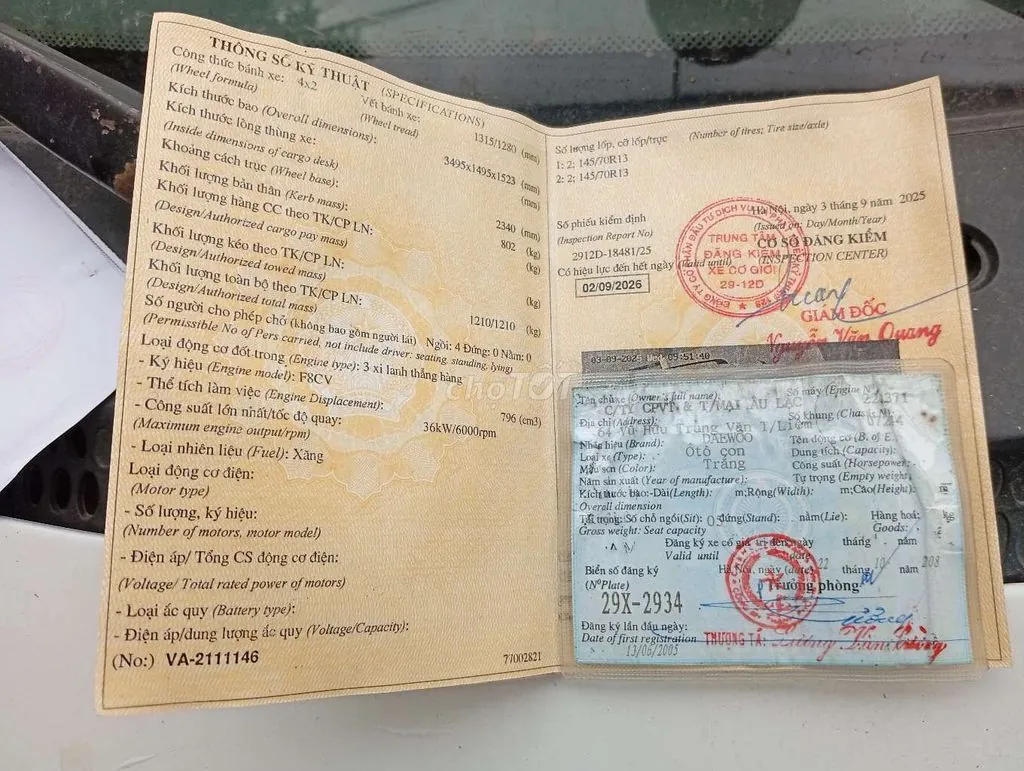 THÔNG SỐ KỸ THUẬT (SPECIFICATIONS)
Công thức bánh xe: 4x2 Vết bánh xe: 1315/1280 (mm)
(Wheel formula) (Wheel tread)
Kích thước bao (Overall dimensions): 3495x1495x1523 (mm)
Kích thước lòng thùng xe: (mm)
(Inside dimensions of cargo desk)
Khoảng cách trục (Wheel base): 2340 (mm)
Khối lượng bản thân (Kerb mass): 802 (kg)
Khối lượng hàng CC theo TK/CP LN: (kg)
(Design/Authorized cargo pay mass)
Khối lượng kéo theo TK/CP LN: (kg)
(Design/Authorized towed mass)
Khối lượng toàn bộ theo TK/CP LN: 1210/1210 (kg)
(Design/Authorized total mass)
Số người cho phép chở (không bao gồm người lái) Ngồi: 4 Đứng: 0 Nằm: 0
(Permissible No of Pers carried, not include driver: seating, standing, lying)
Loại động cơ đốt trong (Engine type): 3 xi lanh thẳng hàng
- Ký hiệu (Engine model): F8CV
- Thể tích làm việc (Engine Displacement): 796 (cm3)
- Công suất lớn nhất/tốc độ quay: 36kW/6000rpm
(Maximum engine output/rpm)
- Loại nhiên liệu (Fuel): Xăng
Loại động cơ điện:
(Motor type)
- Số lượng, ký hiệu:
(Number of motors, motor model)
- Điện áp/ Tổng CS động cơ điện:
(Voltage/ Total rated power of motors)
- Loại ắc quy (Battery type):
- Điện áp/dung lượng ắc quy (Voltage/Capacity):
(No:) VA-2111146 77002821
Số lượng lốp, cỡ lốp/trục (Number of tires; Tire size/axle)
1: 2; 145/70R13
2: 2; 145/70R13
Hà Nội, ngày 3 tháng 9 năm 2025
(Issued on: Day/Month/Year)
Số phiếu kiểm định
(Inspection Report No)
CƠ SỞ ĐĂNG KIỂM
(INSPECTION CENTER)
2912D-18481/25
Có hiệu lực đến hết ngày (Valid until)
02/09/2026
TRUNG TÂM
ĐĂNG KIỂM
XE CƠ GIỚI
29-12D
GIÁM ĐỐC
Nguyễn Văn Quang
09:51:40
chợTỐT
Tên chủ xe (Owner's full name): Số máy (Engine N
C/TY CPVT & T/MẠI ÂU LẠC 221371
Địa chỉ (Address): Số khung (Chassis N
64 Vũ Hữu Trung Văn T/Liêm
Nhãn hiệu (Brand): DAEWOO Tên động cơ (B. of E
Loại xe (Type): Ôtô con Dung tích (Capacity):
Màu sơn (Color): Trắng Công suất (Horsepower):
Năm sản xuất (Year of manufacture): Tự trọng (Empty weight)
Kích thước bao:-Dài(Length): m;Rộng(Width): m;Cao(Height): m
Overall dimension
Tải trọng: Số chỗ ngồi(Sit): 05 đứng(Stand): nằm(Lie): Hàng hoá: kg
Gross weight: Seat capacity Goods:
Đăng ký xe có giá trị đến ngày tháng năm
Valid until date
Biển số đăng ký Hà Nội, ngày (date) 22 tháng 10 năm
(N°Plate) Trưởng phòng
29X-2934
Đăng ký lần đầu ngày:
Date of first registration THƯỢNG TÁ:
13/06/2005